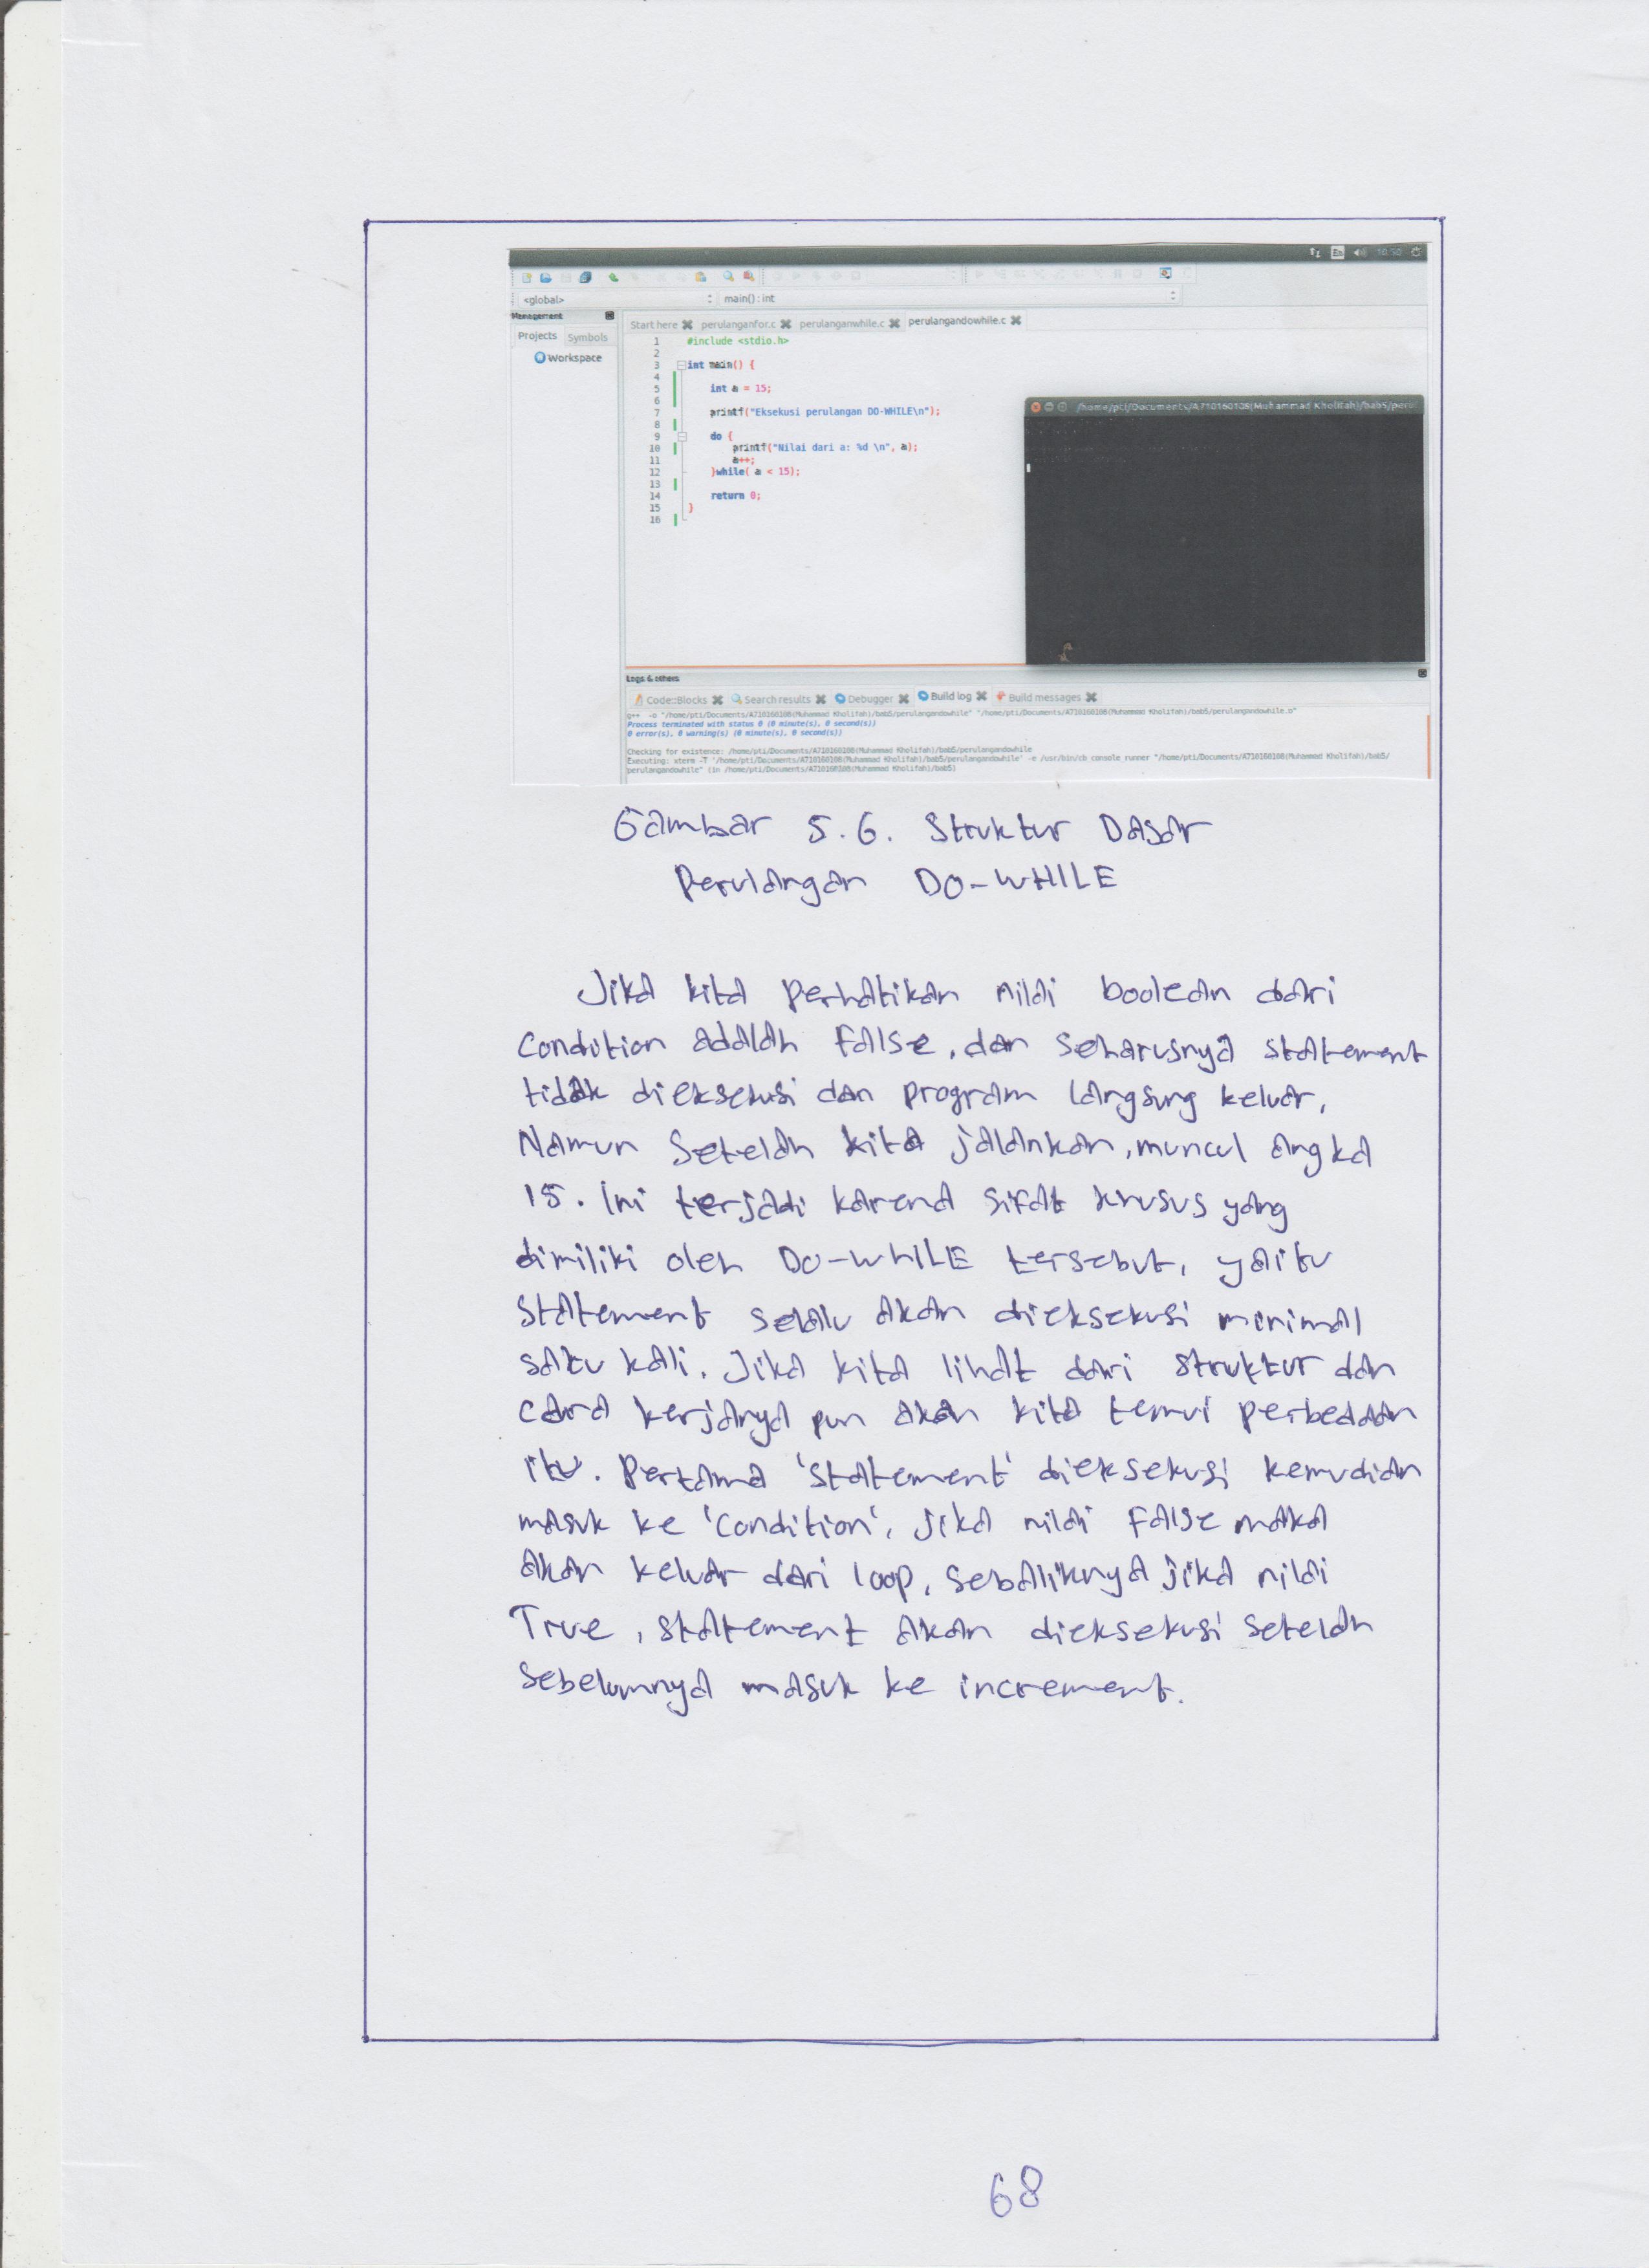 10:50
<global>
main() : int
Management
Projects Symbols
Workspace
Start here perulanganfor.c perulanganwhile.c perulangandowhile.c
1 #include <stdio.h>
2
3 int main() {
4
5 int a = 15;
6
7 printf("Eksekusi perulangan DO-WHILE\n");
8
9 do {
10 printf("Nilai dari a: %d \n", a);
11 a++;
12 }while( a < 15);
13
14 return 0;
15 }
16
/home/pti/Documents/A710160108(Muhammad Kholifah)/bab5/peru
Logs & others
Code::Blocks Search results Debugger Build log Build messages
g++ -o "/home/pti/Documents/A710160108(Muhammad Kholifah)/bab5/perulangandowhile" "/home/pti/Documents/A710160108(Muhammad Kholifah)/bab5/perulangandowhile.o"
Process terminated with status 0 (0 minute(s), 0 second(s))
0 error(s), 0 warning(s) (0 minute(s), 0 second(s))
Checking for existence: /home/pti/Documents/A710160108(Muhammad Kholifah)/bab5/perulangandowhile
Executing: xterm -T '/home/pti/Documents/A710160108(Muhammad Kholifah)/bab5/perulangandowhile' -e /usr/bin/cb console runner "/home/pti/Documents/A710160108(Muhammad Kholifah)/bab5/
perulangandowhile" (in /home/pti/Documents/A710160108(Muhammad Kholifah)/bab5)
Gambar 5.6. Struktur Dasar
Perulangan DO-WHILE
Jika kita perhatikan nilai boolean dari
condition adalah false, dan seharusnya statement
tidak dieksekusi dan program langsung keluar,
Namun setelah kita jalankan, muncul angka
15. Ini terjadi karena sifat khusus yang
dimiliki oleh DO-WHILE tersebut, yaitu
statement selalu akan dieksekusi minimal
satu kali. Jika kita lihat dari struktur dan
cara kerjanya pun akan kita temui perbedaan
itu. Pertama 'statement' dieksekusi kemudian
masuk ke 'condition', jika nilai false maka
akan keluar dari loop, sebaliknya jika nilai
True, statement akan dieksekusi setelah
sebelumnya masuk ke increment.
68